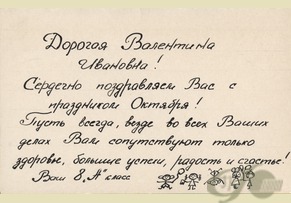 Дорогая Валентина
Ивановна!
Сердечно поздравляем Вас с
праздником Октября!
Пусть всегда, везде во всех Ваших
делах Вам сопутствуют только
здоровье, большие успехи, радость и счастье!
Ваш 8 „А" класс